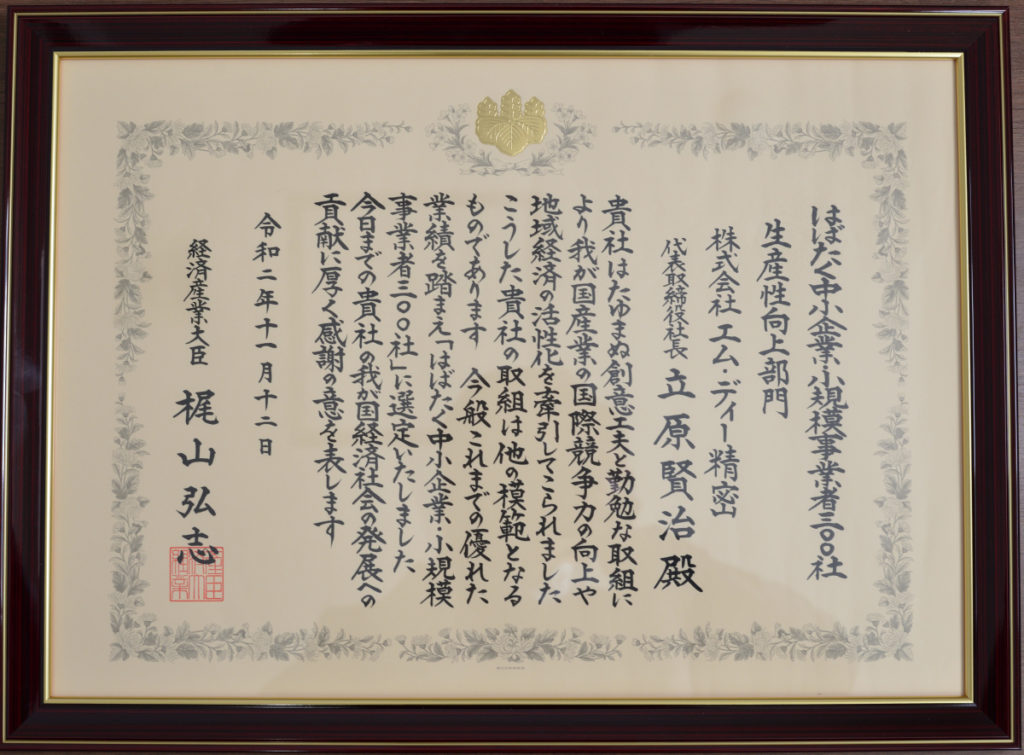 はばたく中小企業・小規模事業者三〇〇社
生産性向上部門
株式会社 エム・ディー精密
代表取締役社長 立原賢治 殿
貴社はたゆまぬ創意工夫と勤勉な取組に
より我が国産業の国際競争力の向上や
地域経済の活性化を牽引してこられました
こうした貴社の取組は他の模範となる
ものであります 今般これまでの優れた
業績を踏まえ「はばたく中小企業・小規模
事業者三〇〇社」に選定いたしました
今日までの貴社の我が国経済社会の発展への
貢献に厚く感謝の意を表します
令和二年十一月十二日
経済産業大臣 梶山弘志